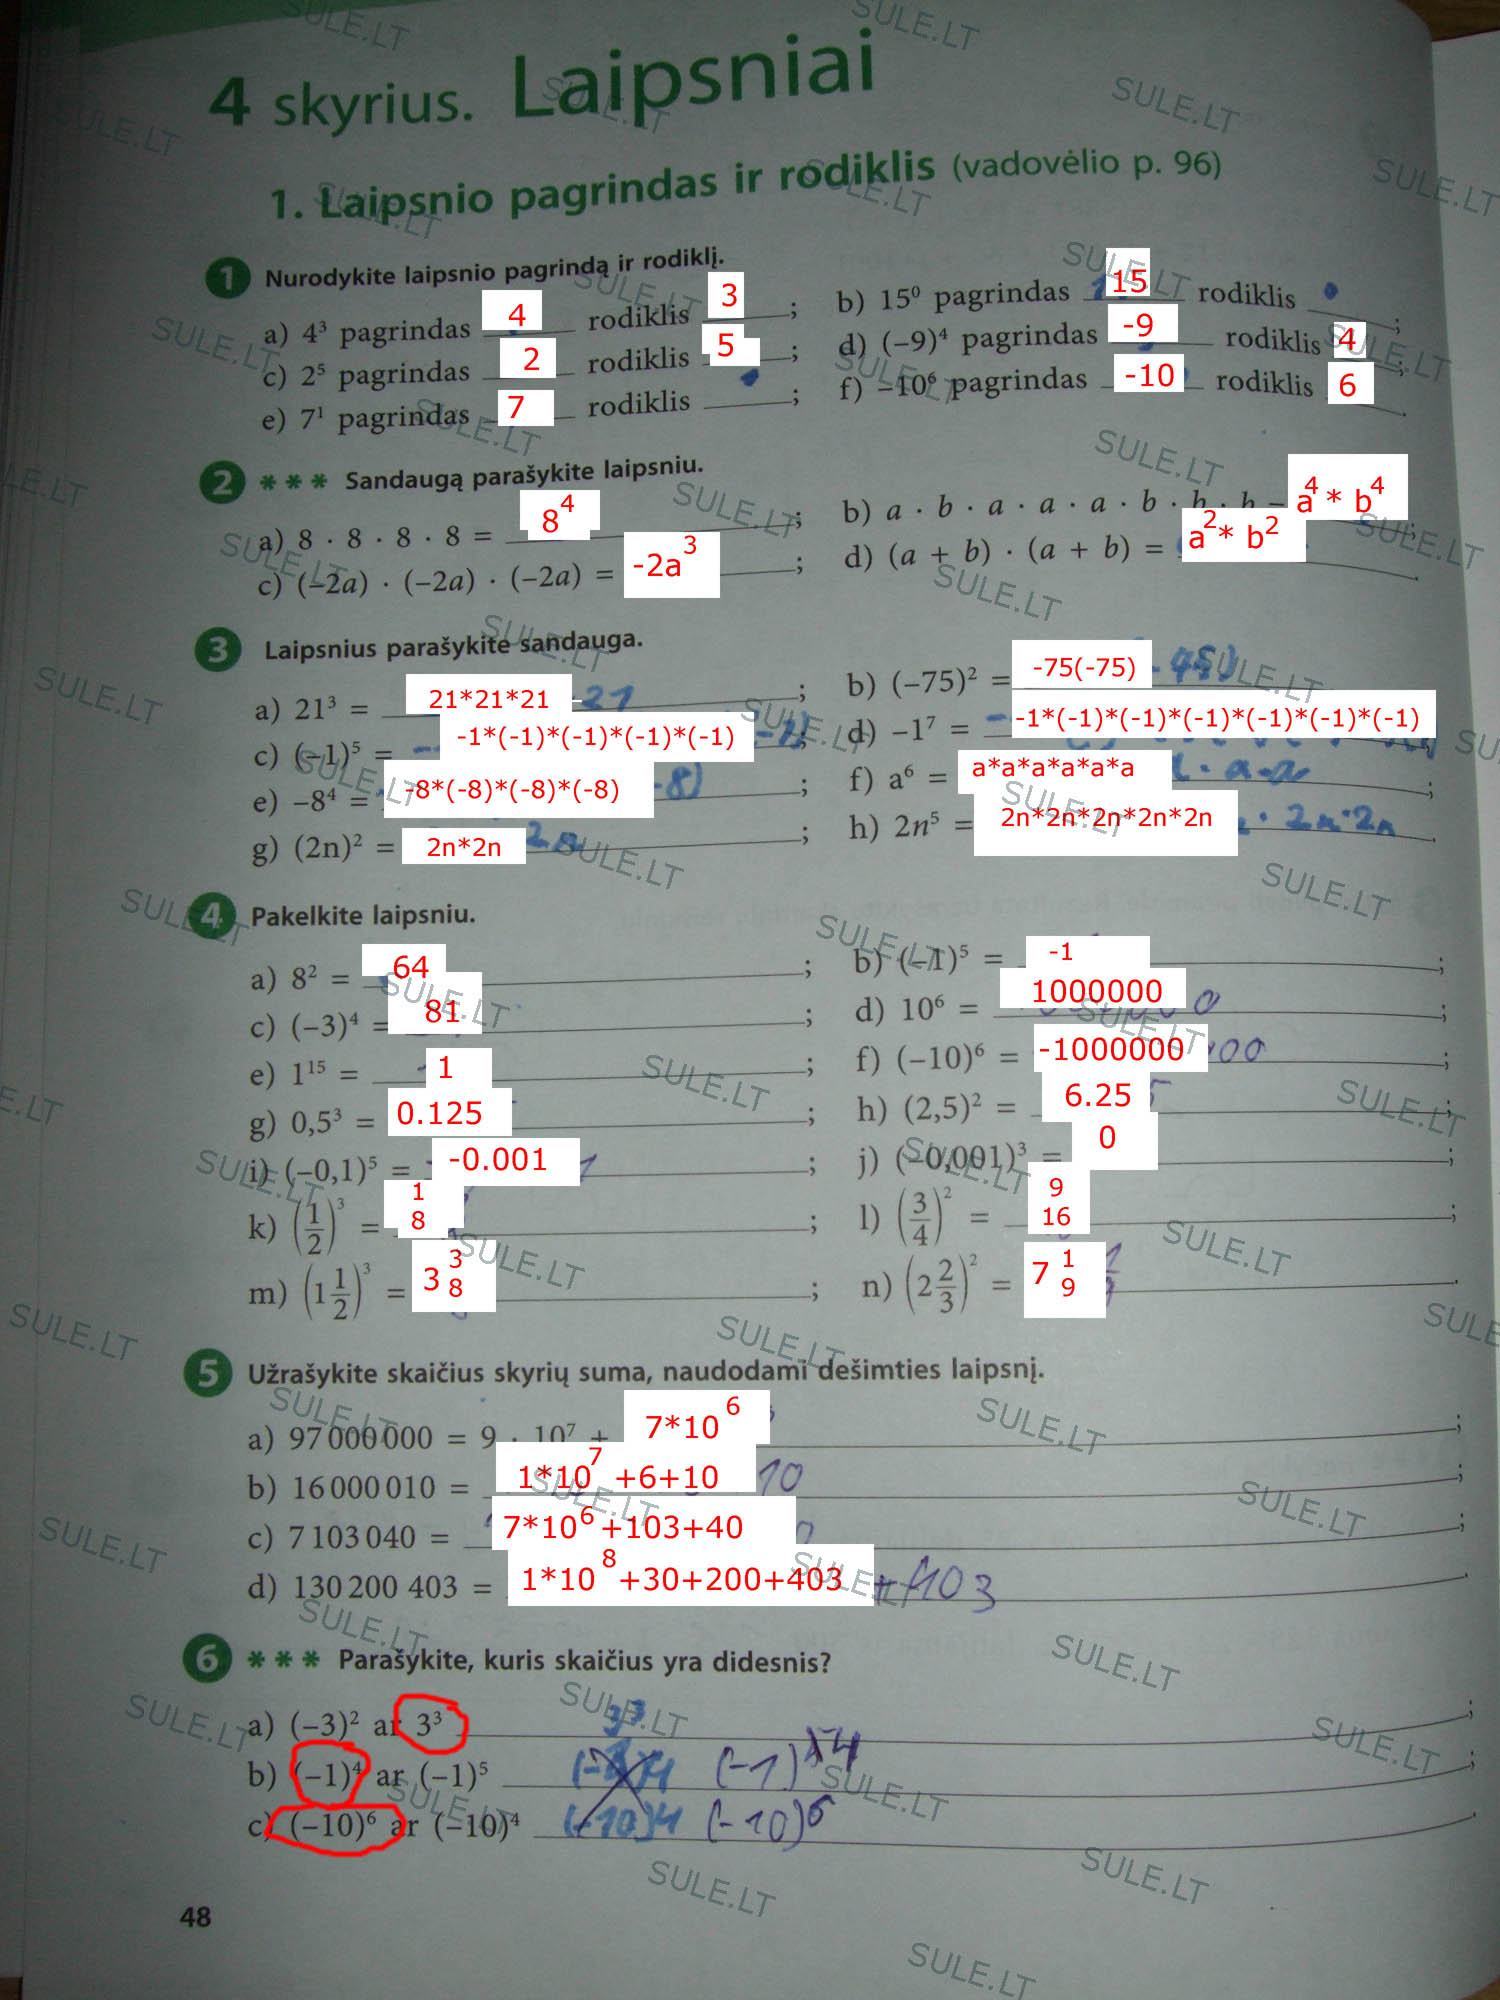 4 skyrius. Laipsniai
1. Laipsnio pagrindas ir rodiklis (vadovėlio p. 96)
1 Nurodykite laipsnio pagrindą ir rodiklį.
a) 4³ pagrindas 4 rodiklis 3 ;
b) 15⁰ pagrindas 15 rodiklis ;
c) 2⁵ pagrindas 2 rodiklis 5 ;
d) (–9)⁴ pagrindas -9 rodiklis 4 ;
e) 7¹ pagrindas 7 rodiklis ;
f) –10⁶ pagrindas -10 rodiklis 6 .
2 *** Sandaugą parašykite laipsniu.
a) 8 · 8 · 8 · 8 = 8⁴ ;
b) a · b · a · a · a · b · b · b = a⁴ * b⁴ ;
c) (–2a) · (–2a) · (–2a) = -2a³ ;
d) (a + b) · (a + b) = a² * b² .
3 Laipsnius parašykite sandauga.
a) 21³ = 21*21*21 21 ;
b) (–75)² = -75(-75) ;
c) (–1)⁵ = -1*(-1)*(-1)*(-1)*(-1) ;
d) –1⁷ = -1*(-1)*(-1)*(-1)*(-1)*(-1)*(-1)
e) –8⁴ = -8*(-8)*(-8)*(-8) -8) ;
f) a⁶ = a*a*a*a*a*a · a · a ;
g) (2n)² = 2n*2n 2n ;
h) 2n⁵ = 2n*2n*2n*2n*2n · 2n · 2n .
4 Pakelkite laipsniu.
a) 8² = 64 ;
b) (–1)⁵ = -1 ;
c) (–3)⁴ = 81 ;
d) 10⁶ = 1000000 0 ;
e) 1¹⁵ = 1 ;
f) (–10)⁶ = -1000000 00 ;
g) 0,5³ = 0.125 ;
h) (2,5)² = 6.25 5 ;
i) (–0,1)⁵ = -0.001 1 ;
j) (–0,001)³ = 0 ;
k) (1/2)³ = 1 8 ;
l) (3/4)² = 9 16 ;
m) (1 1/2)³ = 3 3 8 ;
n) (2 2/3)² = 7 1 9 .
5 Užrašykite skaičius skyrių suma, naudodami dešimties laipsnį.
a) 97 000 000 = 9 · 10⁷ + 7*10⁶ ;
b) 16 000 010 = 1*10⁷ +6+10 10 ;
c) 7 103 040 = 7*10⁶ +103+40 0 ;
d) 130 200 403 = 1*10⁸ +30+200+403 +403 .
6 *** Parašykite, kuris skaičius yra didesnis?
a) (–3)² ar 3³ 3³ ;
b) (–1)⁴ ar (–1)⁵ (-1)⁴ ;
c) (–10)⁶ ar (–10)⁴ (-10)4 (-10)⁶ .
48
SULE.LT